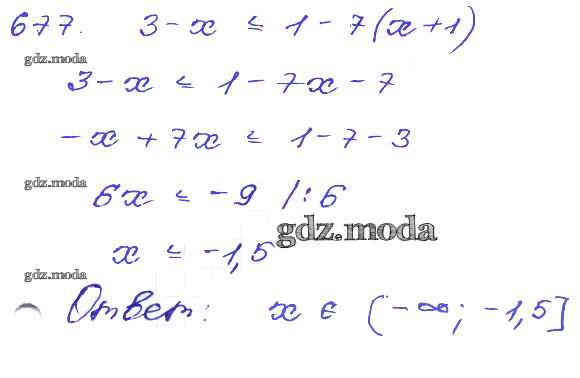 677. 3-x ≤ 1-7(x+1)
gdz.moda
3-x ≤ 1-7x-7
-x+7x ≤ 1-7-3
gdz.moda
6x ≤ -9 /:6
gdz.moda
x ≤ -1,5
gdz.moda
Ответ: x ∈ (-∞; -1,5]